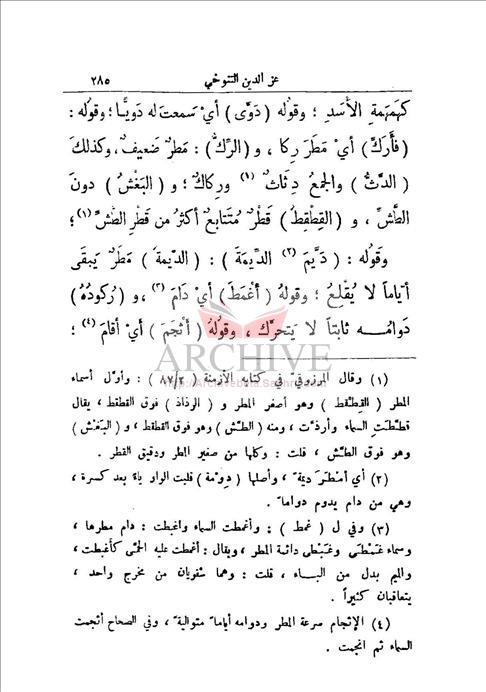 عز الدين التنوخي ٢٨٥
كهَمهَمةِ الأَسدِ ؛ وقولُه ( دَوَّى ) أيْ سَمعتَ له دَويّاً ؛ وقولُه :
( فأَركَّ ) أي مَطَرَ رِكا ، و ( الرِّكُّ ) : مَطَرٌ ضَعيفٌ ، وكذلكَ
( الدَّثُّ ) والجمعُ دِثاثٌ (١) ورِكاكٌ ؛ و ( البَغْشُ ) دونَ
الطَّشِّ ، و ( القِطْقِطُ ) قَطْرٌ مُتتابعٌ أكثرُ من قَطْرِ الطَّشِّ (١) ؛
وقَولُه : ( دَيَّمَ (٢) الدِّيمَةَ ) : ( الدّيمةُ ) مَطَرٌ يَبقَى
أيّاماً لا يُقْلِعُ ؛ وقولهُ ( أغْمَطَ ) أيْ دَامَ (٣) ، و ( رُكودُهُ )
دَوامُـه ثابتاً لا يَتحرَّك ، وقولُهُ ( أَثْجَمَ ) أيْ أَقامَ (٤) ؛
ARCHIVE
(١) وقال المرزوقي في كتابه الأزمنة ( ٨٧/٢ ) : وأوّل أسماء
المطر ( القِطْقط ) وهو أصغر المطر و ( الرذاذ ) فوق القطقط ، يقال
قطقطت السماء وأرذّت ، ومنه ( الطّش ) وهو فوق القطقط ، و ( البَغْش )
وهو فوق الطّش ، قلت : وكلها من صغير المطر ودقيق القطر .
(٢) أي أمْطَرَ ديمةً ، وأصلها ( دِوْمة ) قلبت الواو ياءً بعد كسرة ،
وهي من دام يدوم دواماً .
(٣) وفي ل ( غمط ) : وأغمطت السماء واغبطت : دام مطرها ،
وسماء غَمَطَى وغَبَطَى دائمة المطر ، ويقال : أغمطت عليه الحمّى كأغبطت ،
والميم بدل من البـاء ، قلت : وهما شفويان من مخرج واحد ،
يتعاقبان كثيراً .
(٤) الإثجام سرعة المطر ودوامه أياماً متوالية ، وفي الصحاح أثجمت
السماء ثم انجمت .